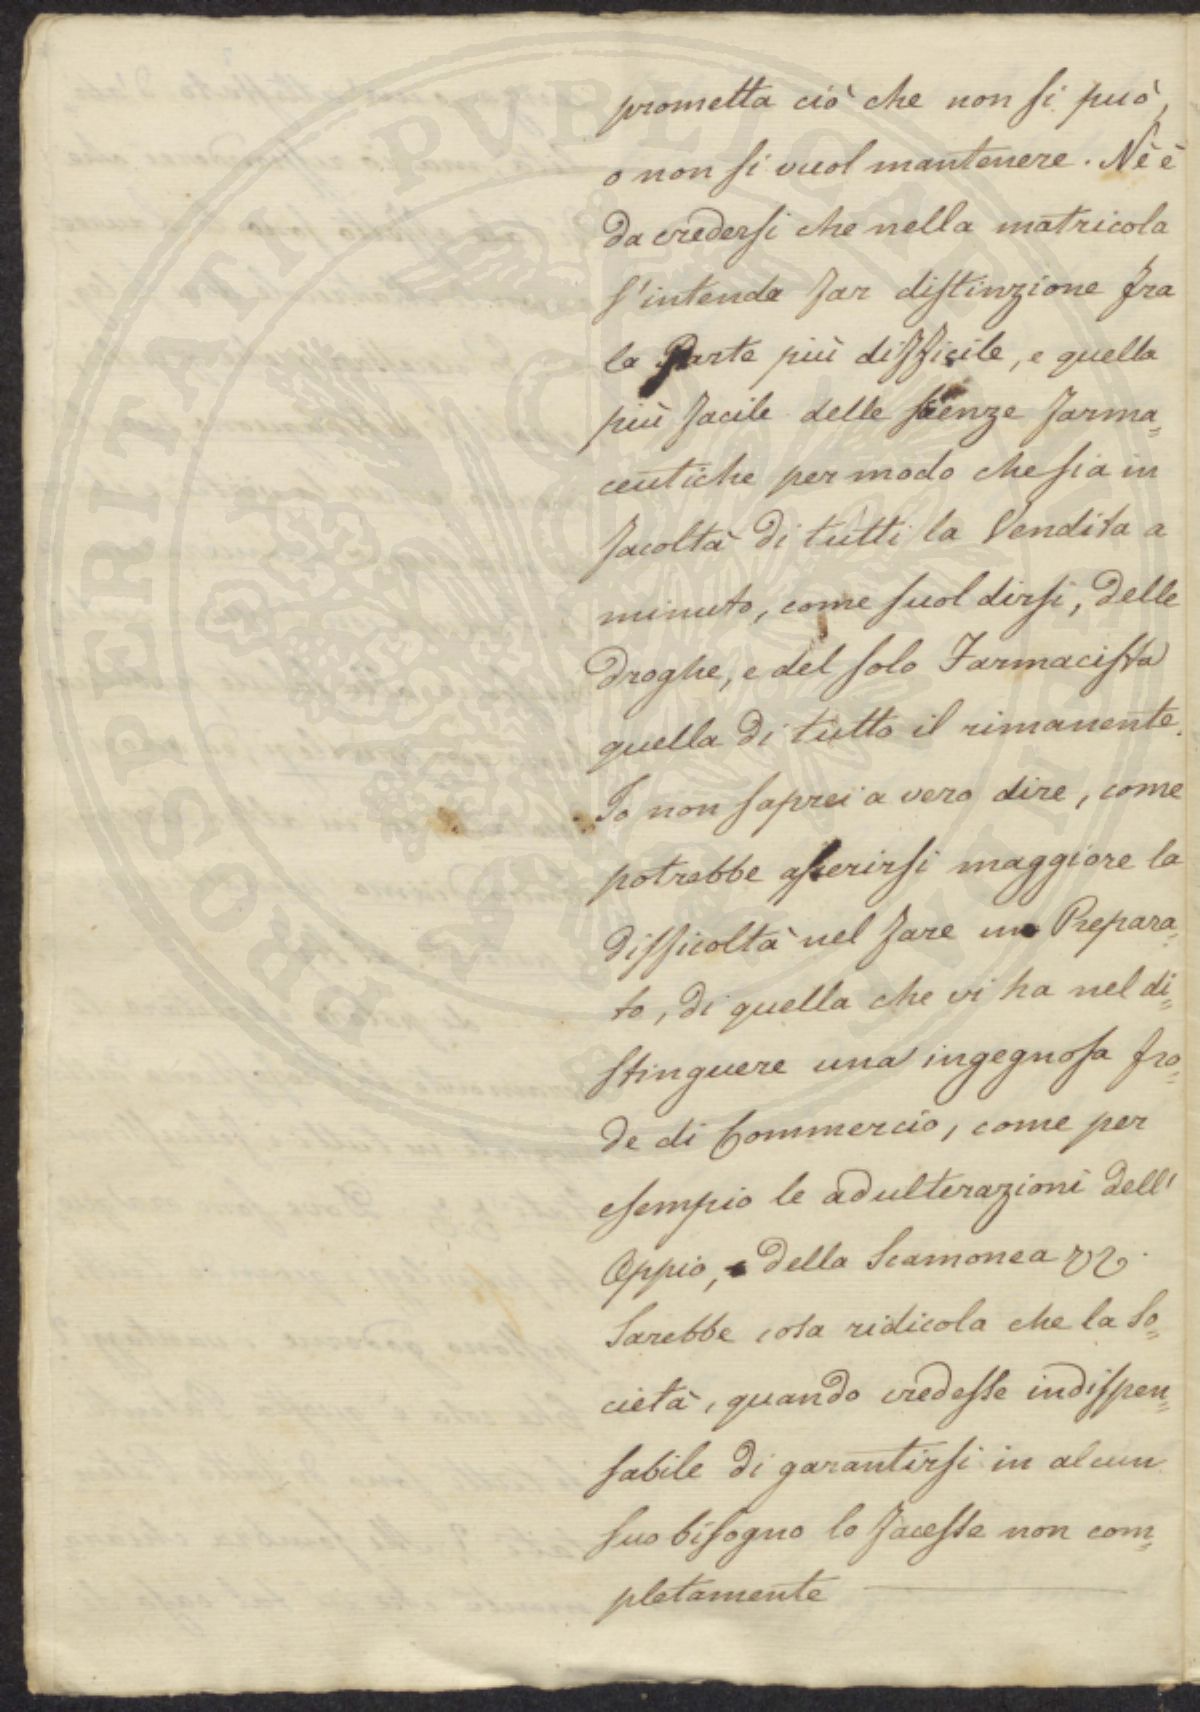 prometta ciò che non si può,
o non si vuol mantenere. Nè è
da credersi che nella matricola
s'intenda far distinzione fra
la Parte più difficile, e quella
più facile delle scienze farma=
ceutiche per modo che sia in
facoltà di tutti la Vendita a
minuto, come suol dirsi, delle
droghe, e del solo Farmacista
quella di tutto il rimanente.
Io non saprei a vero dire, come
potrebbe asserirsi maggiore la
difficoltà nel fare un Prepara=
to, di quella che vi ha nel di=
stinguere una ingegnosa fro=
de di Commercio, come per
esempio le adulterazioni dell'
Oppio, della Scamonea
Sarebbe cosa ridicola che la So=
cietà, quando credesse indispen=
sabile di garantirsi in alcun
suo bisogno lo facesse non com=
pletamente
PROSPERITATI PUBLICAE